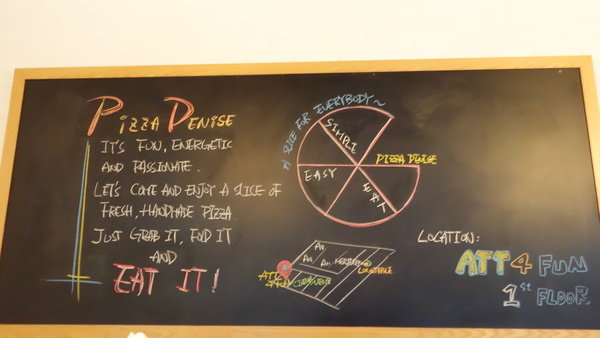 PIZZA DENISE
IT'S FUN, ENERGETIC
AND PASSIONATE.
LET'S COME AND ENJOY A SLICE OF
FRESH, HANDMADE PIZZA
JUST GRAB IT, FOLD IT
AND
EAT IT!
A SLICE FOR EVERYBODY~
SIMPLE
PIZZA DENISE
EASY
EAT
ATT
4 FUN
LOCATION:
ATT 4 FUN
1st FLOOR